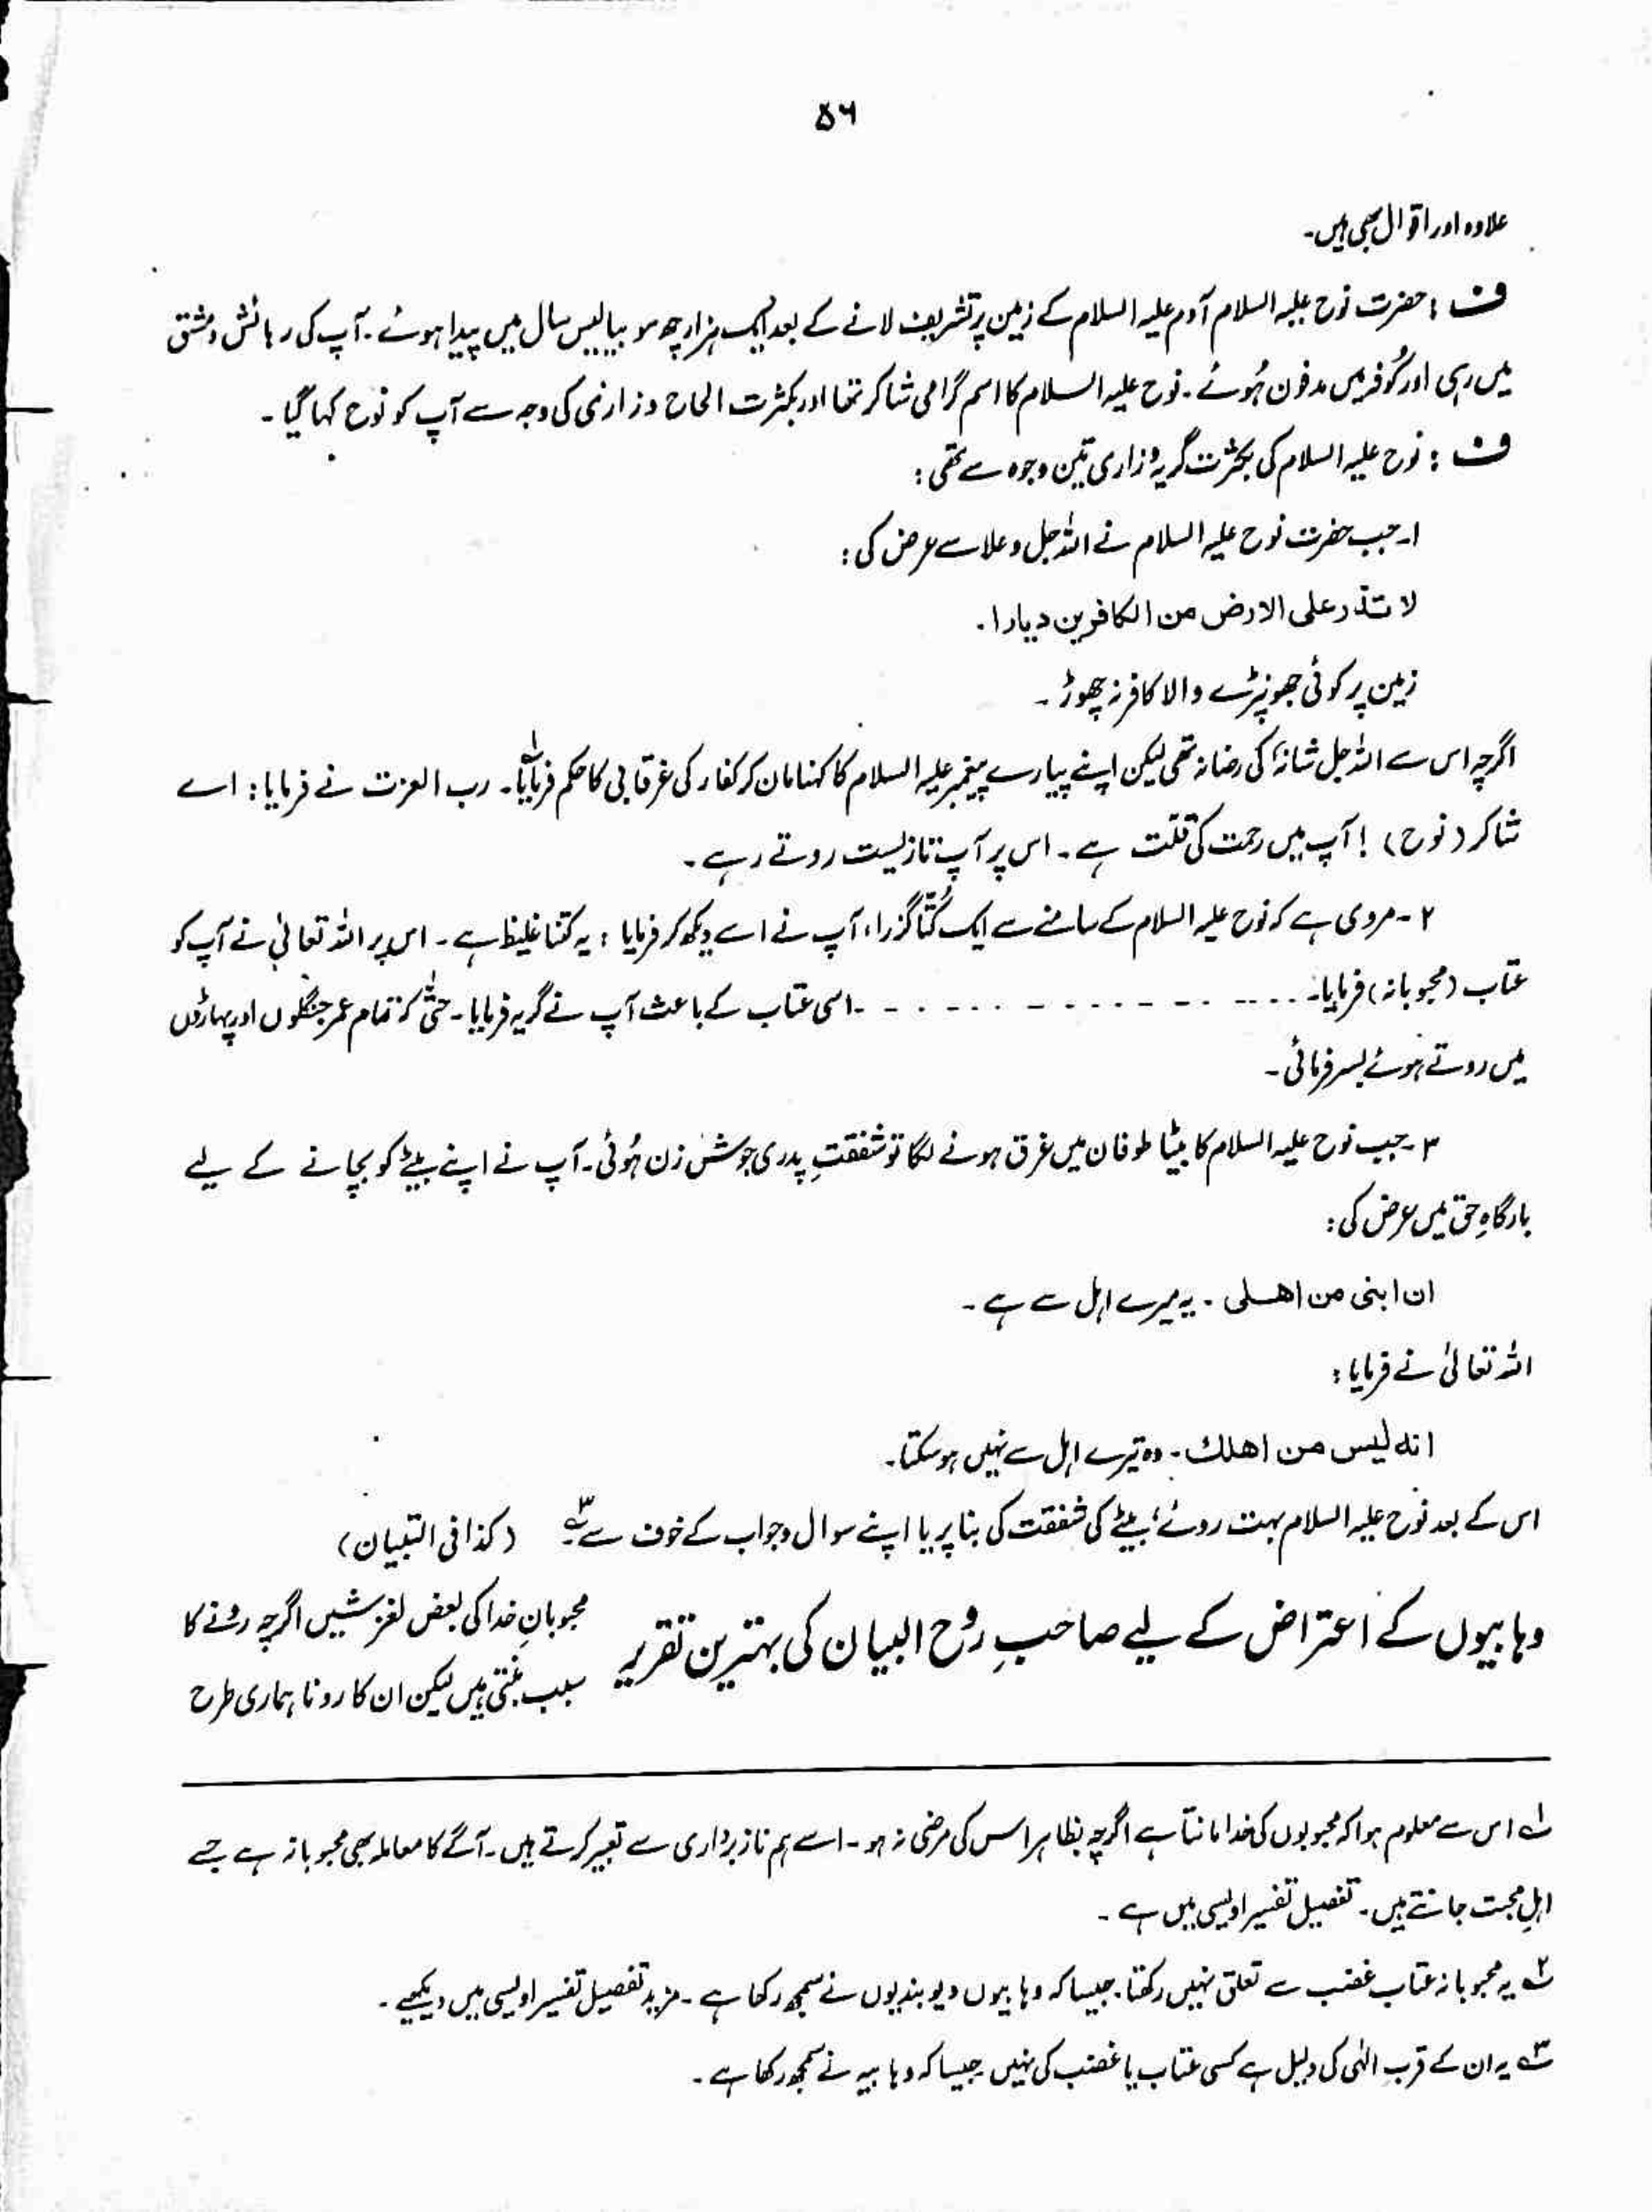 ۵۶
علاوہ اور اقوال بھی ہیں۔
ف : حضرت نوح علیہ السلام آدم علیہ السلام کے زمین پر تشریف لانے کے بعد ایک ہزار چھ سو بیالیس سال میں پیدا ہوئے۔ آپ کی رہائش دمشق
میں رہی اور کُوفہ میں مدفون ہُوئے۔ نوح علیہ السلام کا اسم گرامی شاکر تھا اور بکثرت الحاح و زاری کی وجہ سے آپ کو نوح کہا گیا۔
ف : نوح علیہ السلام کی بکثرت گریہ و زاری تین وجوہ سے تھی :
۱۔ جب حضرت نوح علیہ السلام نے اللہ جل و علا سے عرض کی :
لا تذر علی الارض من الکافرین دیارا۔
زمین پر کوئی جھونپڑے والا کافر نہ چھوڑ۔
اگرچہ اس سے اللہ جل شانہٗ کی رضا نہ تھی لیکن اپنے پیارے پیغمبر علیہ السلام کا کہنا مان کر کفار کی غرقابی کا حکم فرمایا۔ؑ۱ رب العزت نے فرمایا : اے
شاکر (نوح) ! آپ میں رحمت کی قلّت ہے۔ اس پر آپ تا زیست روتے رہے۔
۲۔ مروی ہے کہ نوح علیہ السلام کے سامنے سے ایک کُتّا گزرا، آپ نے اسے دیکھ کر فرمایا : یہ کتنا غلیظ ہے۔ اس پر اللہ تعالیٰ نے آپ کو
عتاب (محبوبانہ) فرمایا۔ - - - - - - - - - - - - - - - اسی عتاب کے باعث آپ نے گریہ فرمایا۔ حتّٰی کہ تمام عمر جنگلوں اور پہاڑوں
میں روتے ہوئے بسر فرمائی۔
۳۔ جب نوح علیہ السلام کا بیٹا طوفان میں غرق ہونے لگا تو شفقتِ پدری جوش زن ہُوئی۔ آپ نے اپنے بیٹے کو بچانے کے لیے
بارگاہِ حق میں عرض کی :
ان ابنی من اھلی۔ یہ میرے اہل سے ہے۔
اللہ تعالیٰ نے فرمایا :
انہ لیس من اھلك۔ وہ تیرے اہل سے نہیں ہو سکتا۔
اس کے بعد نوح علیہ السلام بہت روئے، بیٹے کی شفقت کی بنا پر یا اپنے سوال و جواب کے خوف سے۔۳ (کذا فی التبیان)
وہابیوں کے اعتراض کے لیے صاحبِ روح البیان کی بہترین تقریر
محبوبانِ خدا کی بعض لغزشیں اگرچہ رونے کا
سبب بنتی ہیں لیکن ان کا رونا ہماری طرح
۱ اس سے معلوم ہوا کہ محبوبوں کی خدا مانتا ہے اگرچہ بظاہر اس کی مرضی نہ ہو۔ اسے ہم ناز برداری سے تعبیر کرتے ہیں۔ آگے کا معاملہ بھی محبوبانہ ہے جسے
اہلِ محبت جانتے ہیں۔ تفصیل تفسیر اویسی میں ہے۔
۲ یہ محبوبانہ عتاب غضب سے تعلق نہیں رکھتا۔ جیسا کہ وہابیوں دیوبندیوں نے سمجھ رکھا ہے۔ مزید تفصیل تفسیر اویسی میں دیکھیے۔
۳ یہ ان کے قربِ الٰہی کی دلیل ہے کسی عتاب یا غضب کی نہیں جیسا کہ وہابیہ نے سمجھ رکھا ہے۔